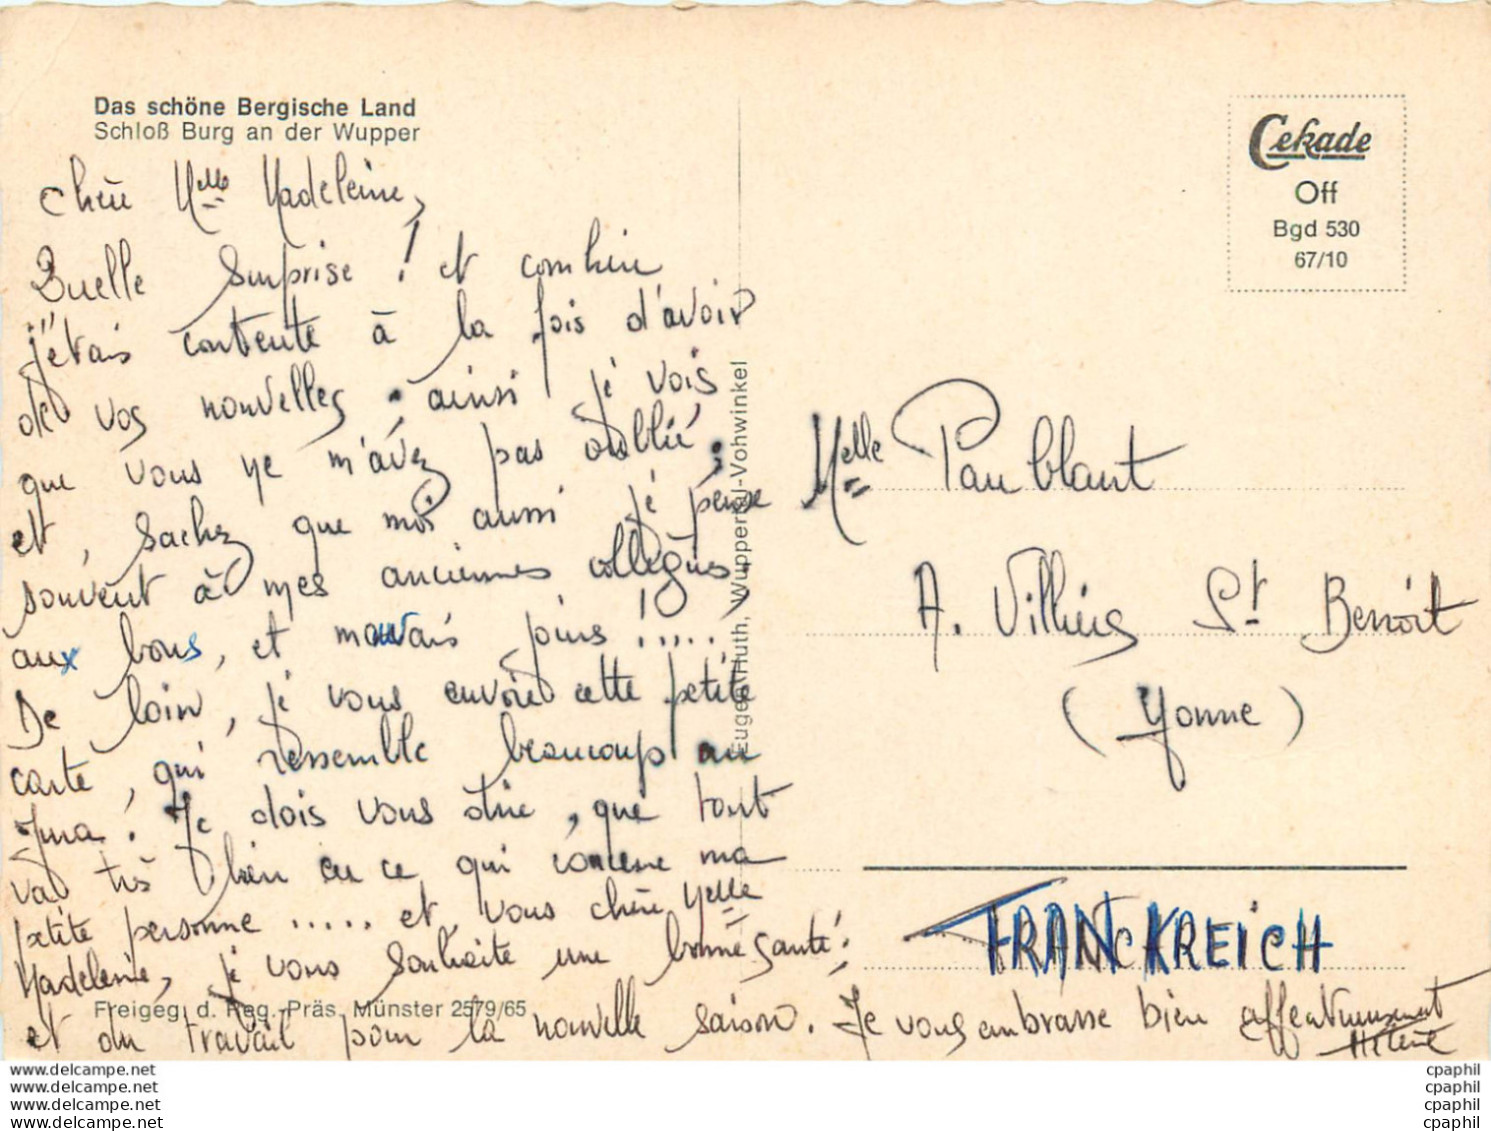 Das schöne Bergische Land
Schloß Burg an der Wupper
Chère Melle Madeleine,
Quelle surprise ! et combien
j'étais contente à la fois d'avoir
de vos nouvelles ; ainsi je vois
que vous ne m'avez pas oublié ;
et, sachez que moi aussi je pense
souvent à mes anciennes collègues,
aux bons, et mauvais jours !.....
De loin, je vous envoie cette petite
carte, qui ressemble beaucoup au
Jura ! Je dois vous dire, que tout
va très bien en ce qui concerne ma
petite personne ..... et vous chère Melle
Madeleine, je vous souhaite une bonne santé !
et du travail pour la nouvelle saison. Je vous embrasse bien affectueusement
Hélène
Freigeg. d. Reg.-Präs. Münster 2579/65
Eugen Huth, Wuppertal-Vohwinkel
Cekade
Off
Bgd 530
67/10
Melle Paublant
A. Villiers St Benoît
(Yonne)
FRANKREICH
www.delcampe.net
www.delcampe.net
www.delcampe.net
www.delcampe.net
cpaphil
cpaphil
cpaphil
cpaphil